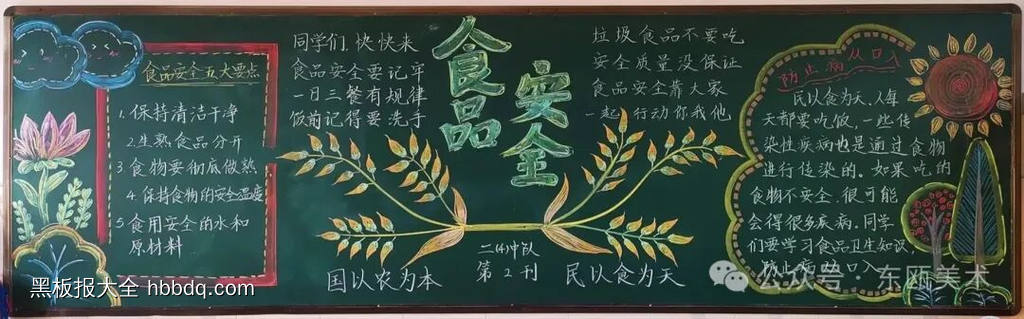 食品安全五大要点
1.保持清洁干净
2.生熟食品分开
3.食物要彻底做熟
4.保持食物的安全温度
5.食用安全的水和
原材料
同学们,快快来
食品安全要记牢
一日三餐有规律
饭前记得要洗手
食品
安全
垃圾食品不要吃
安全质量没保证
食品安全靠大家
一起行动你我他
二(4)中队
第2刊
国以农为本
民以食为天
防止病从口入
民以食为天,人每
天都要吃饭,一些传
染性疾病也是通过食物
进行传染的。如果吃的
食物不安全,很可能
会得很多疾病,同学
们要学习食品卫生知识
防止病 口入
黑板报大全 hbbdq.com
公众号·东瓯美术